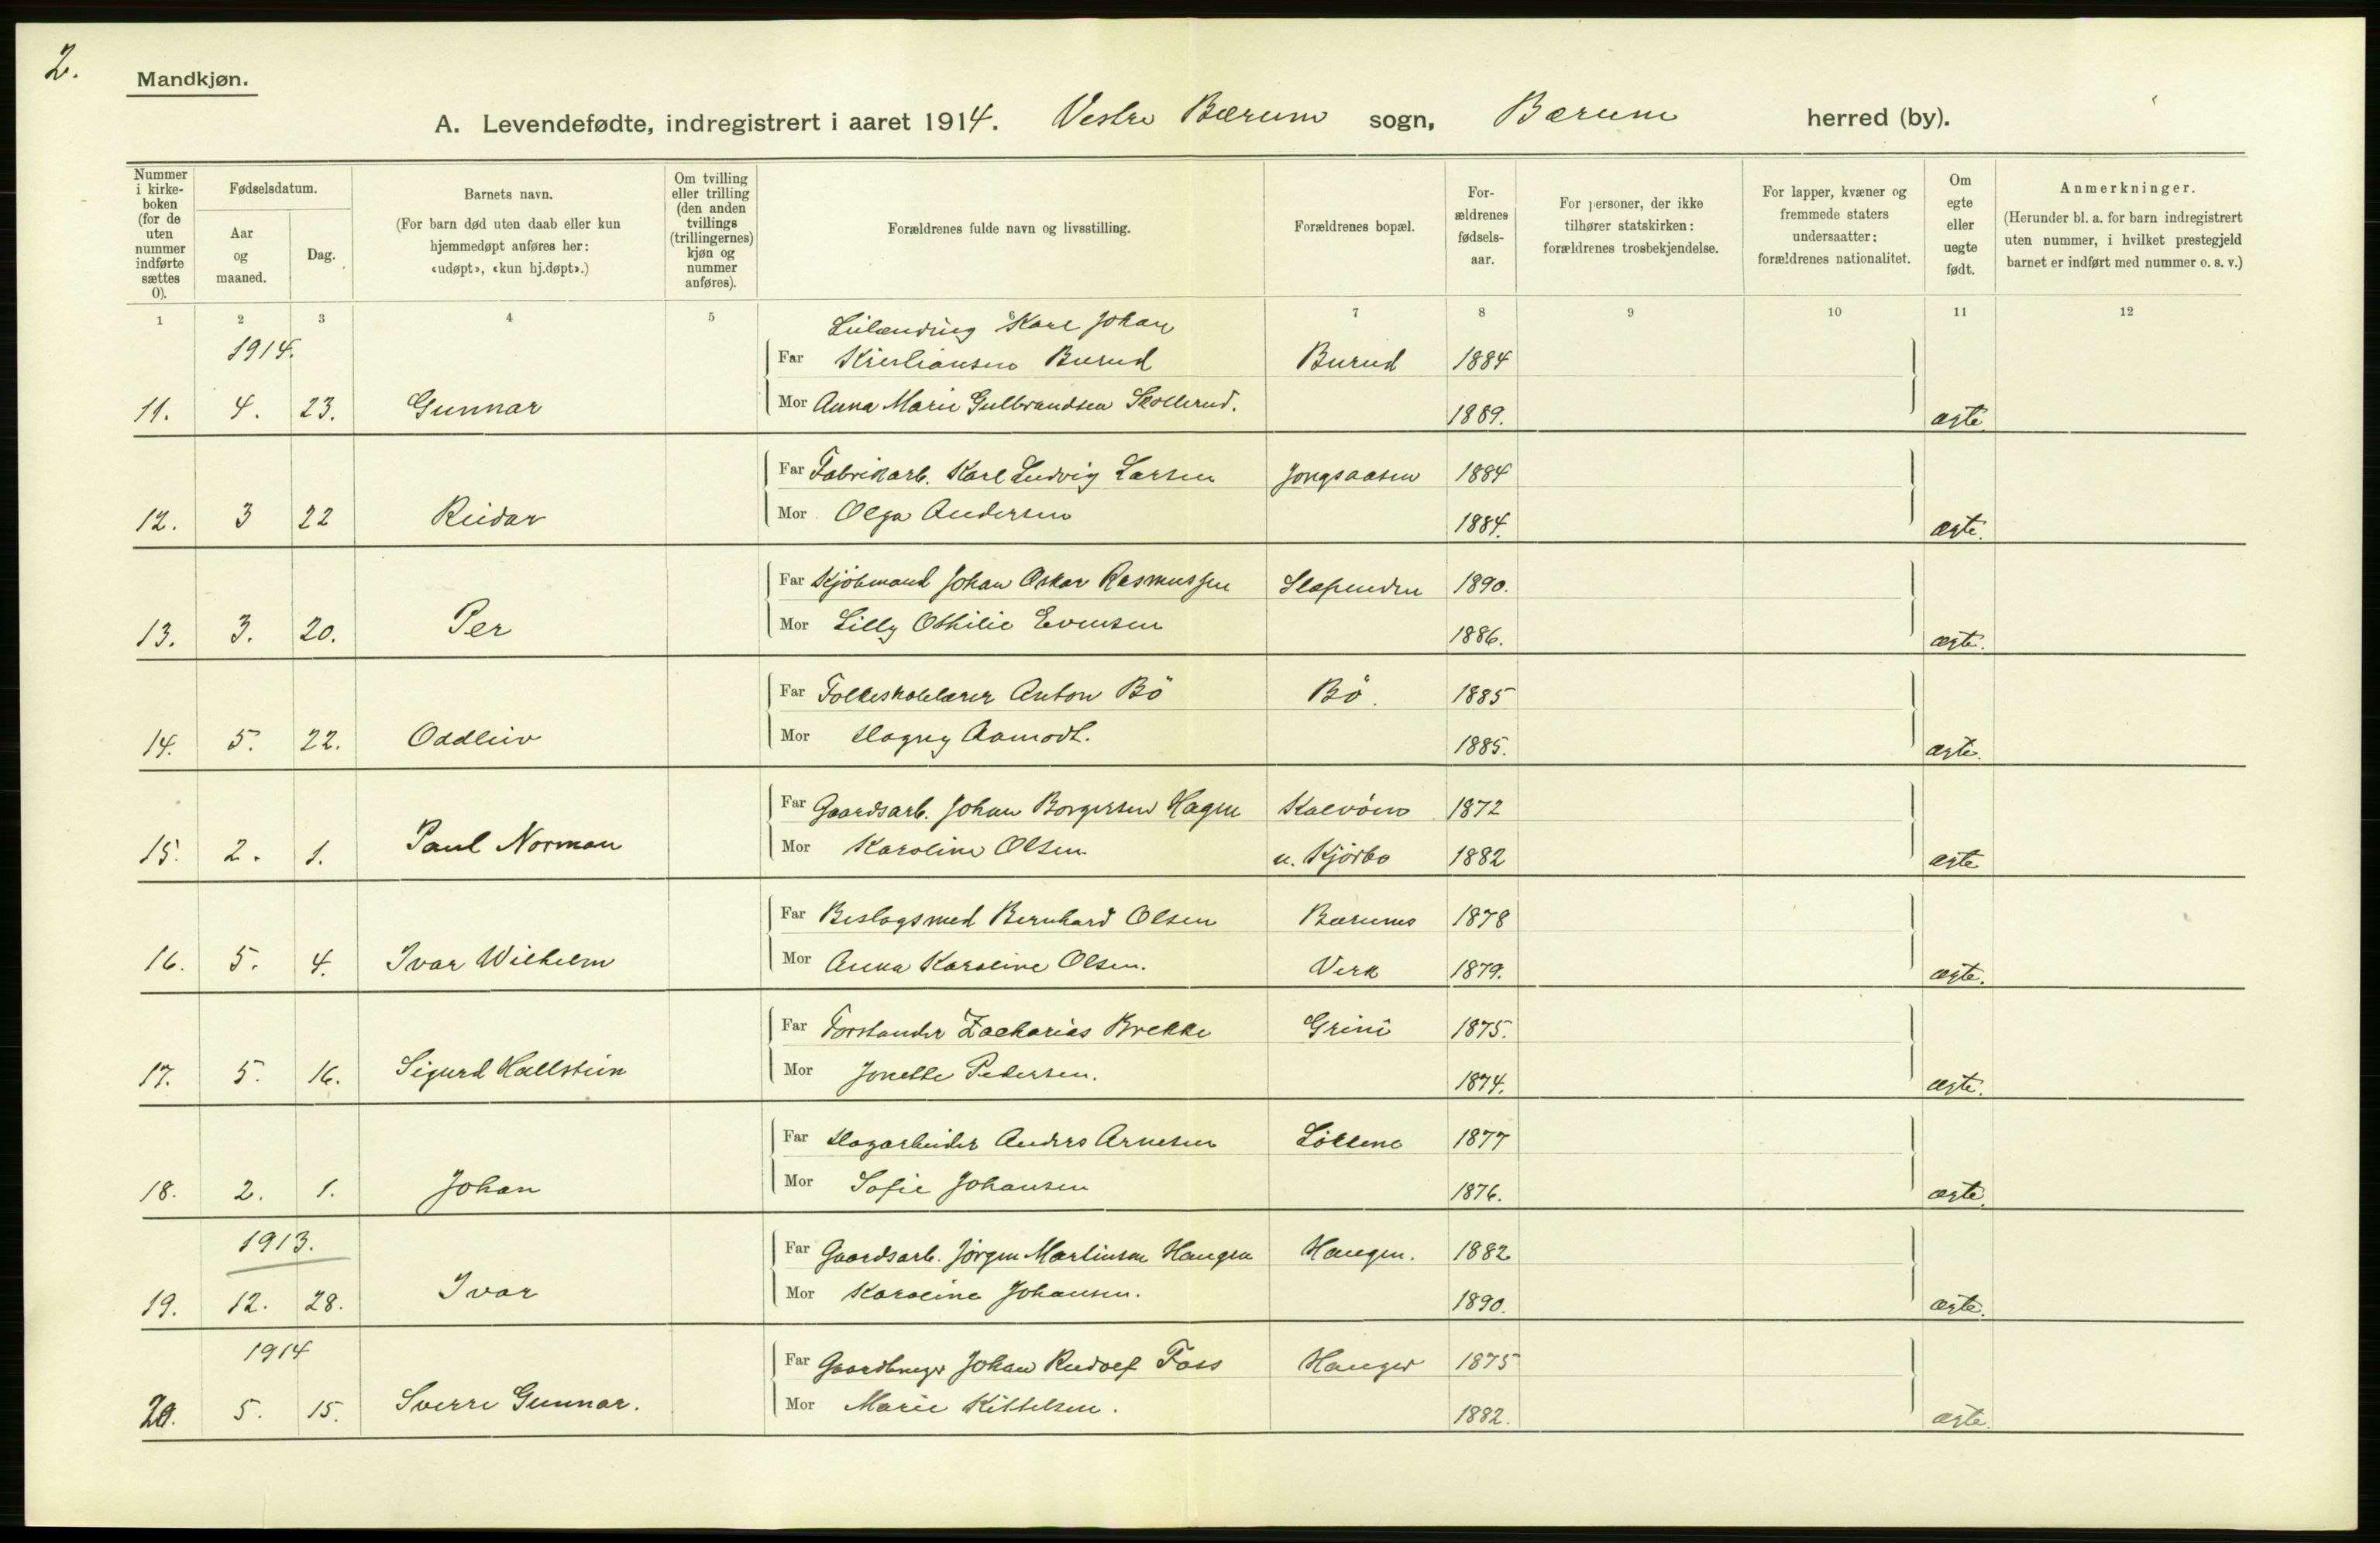 2.
Mandkjøn.
A. Levendefødte, indregistrert i aaret 1914. Vestre Bærum sogn, Bærum herred (by).
Nummer i kirke-boken (for de uten nummer indførte sættes 0).
Fødselsdatum.
Aar og maaned.
Dag.
Barnets navn.
(For barn død uten daab eller kun hjemmedøpt anføres her: «udøpt», «kun hj.døpt».)
Om tvilling eller trilling (den anden tvillings (trillingernes) kjøn og nummer anføres).
Forældrenes fulde navn og livsstilling.
Forældrenes bopæl.
For-ældrenes fødsels-aar.
For personer, der ikke tilhører statskirken: forældrenes trosbekjendelse.
For lapper, kvæner og fremmede staters undersaatter: forældrenes nationalitet.
Om egte eller uegte født.
Anmerkninger.
(Herunder bl. a. for barn indregistrert uten nummer, i hvilket prestegjeld barnet er indført med nummer o. s. v.)
1 2 3 4 5 6 7 8 9 10 11 12
1914.
Leilænding Karl Johan
Far Kristiansen Burud Burud 1884
11. 4. 23. Gunnar Mor Anna Marie Gulbrandsen Skollerud. 1889. ægte
Far Fabrikarb. Karl Ludvig Larsen Jongsaasen 1884
12. 3 22 Reidar Mor Olga Andersen 1884. ægte.
Far Kjøbmand Johan Oskar Rasmussen Slependen 1890.
13. 3. 20. Per Mor Lilly Othilie Evensen 1886. ægte.
Far Folkeskolelærer Anton Bö Bö. 1885
14. 5. 22. Oddleiv Mor Dagny Aamodt. 1885. ægte.
Far Gaardsarb. Johan Borgersen Hagen Kalvöen 1872
15. 2. 1. Paul Norman Mor Karoline Olsen u. Kjörbo 1882 ægte
Far Beslagsmed Bernhard Olsen Bærums 1878
16. 5. 4. Ivar Wilhelm Mor Anna Karoline Olsen. Verk 1879. ægte.
Far Forstander Zacharias Brekke Grini 1875.
17. 5. 16. Sigurd Hallstein Mor Jonette Pedersen. 1874. ægte.
Far Dagarbeider Anders Arnesen Lökkene 1877
18. 2. 1. Johan Mor Sofie Johansen 1876. ægte.
1913.
Far Gaardsarb. Jörgen Martinsen Haugen Haugen. 1882
19. 12. 28. Ivar Mor Karoline Johansen. 1890. ægte.
1914
Far Gaardbruger Johan Rudolf Foss Hauger 1875
20. 5. 15. Sverre Gunnar. Mor Marie Kittelsen. 1882. ægte.